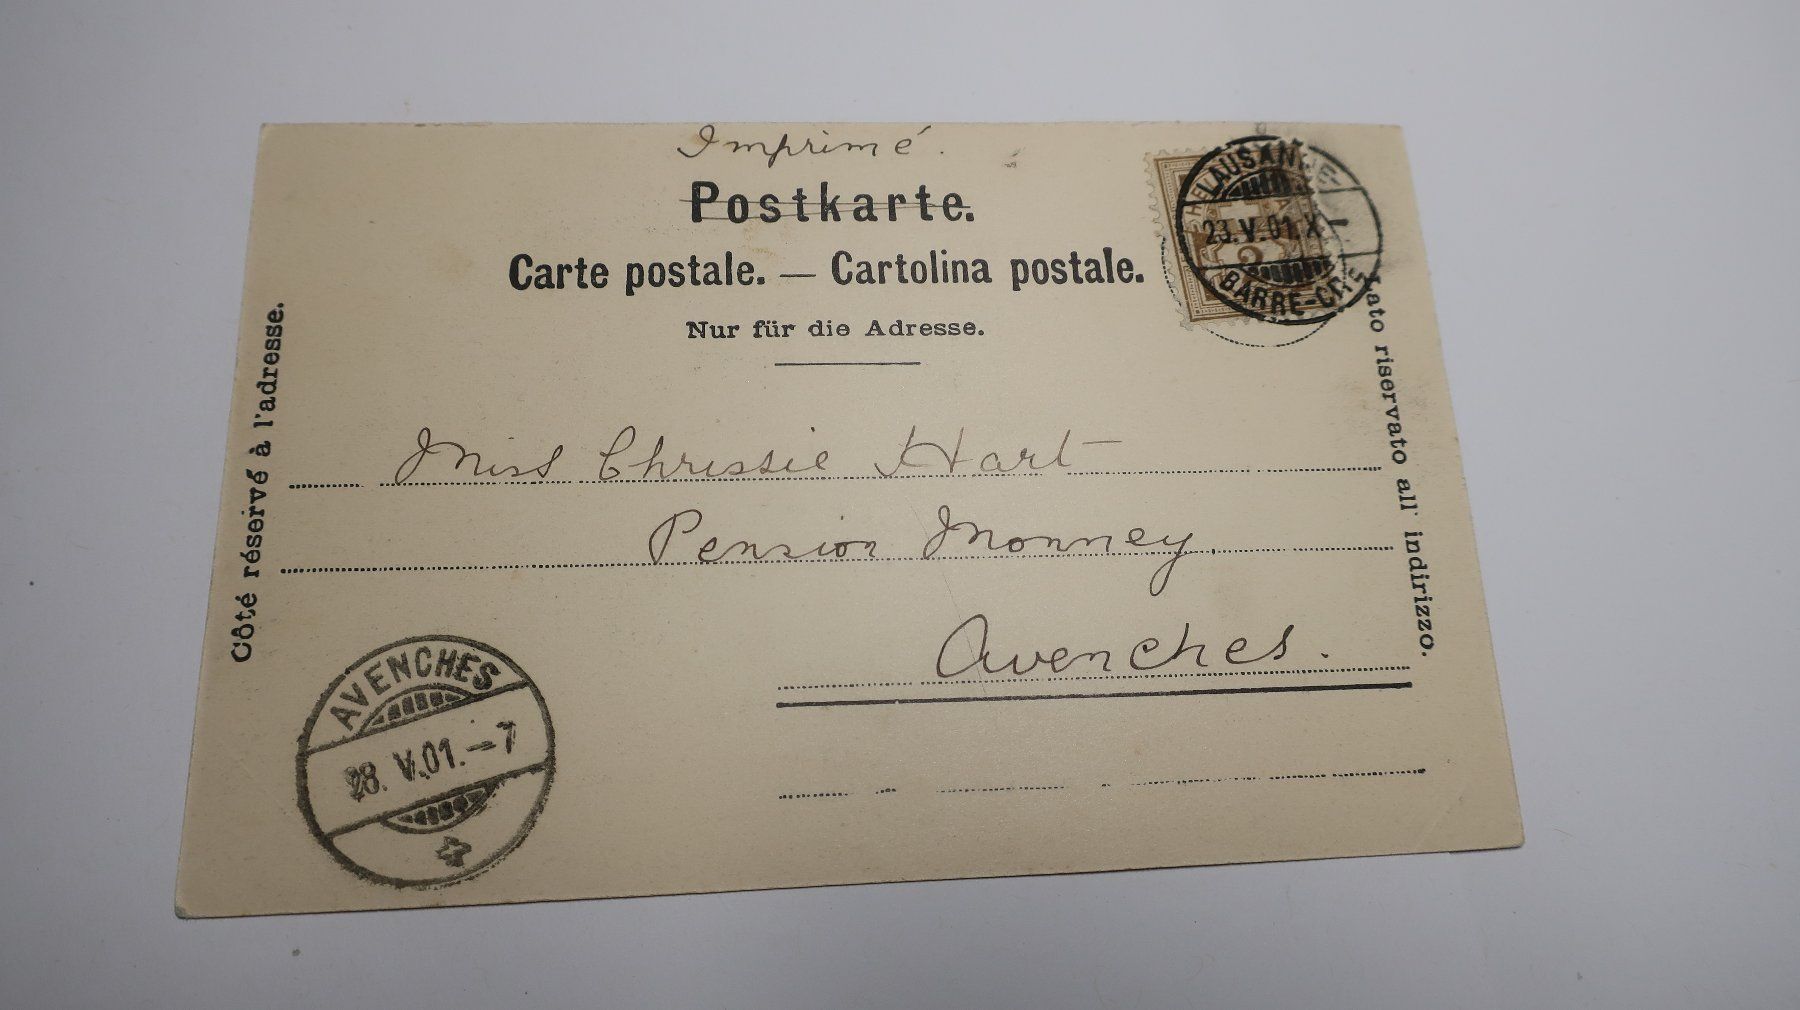 Imprimé.
Postkarte.
Carte postale. — Cartolina postale.
Nur für die Adresse.
Côté réservé à l'adresse.
Lato riservato all' indirizzo.
LAUSANNE-
23.V.01.X
BARRE-
2
Miss Chrissie Hart
Pension Monney,
Avenches.
AVENCHES
28.V.01.-7